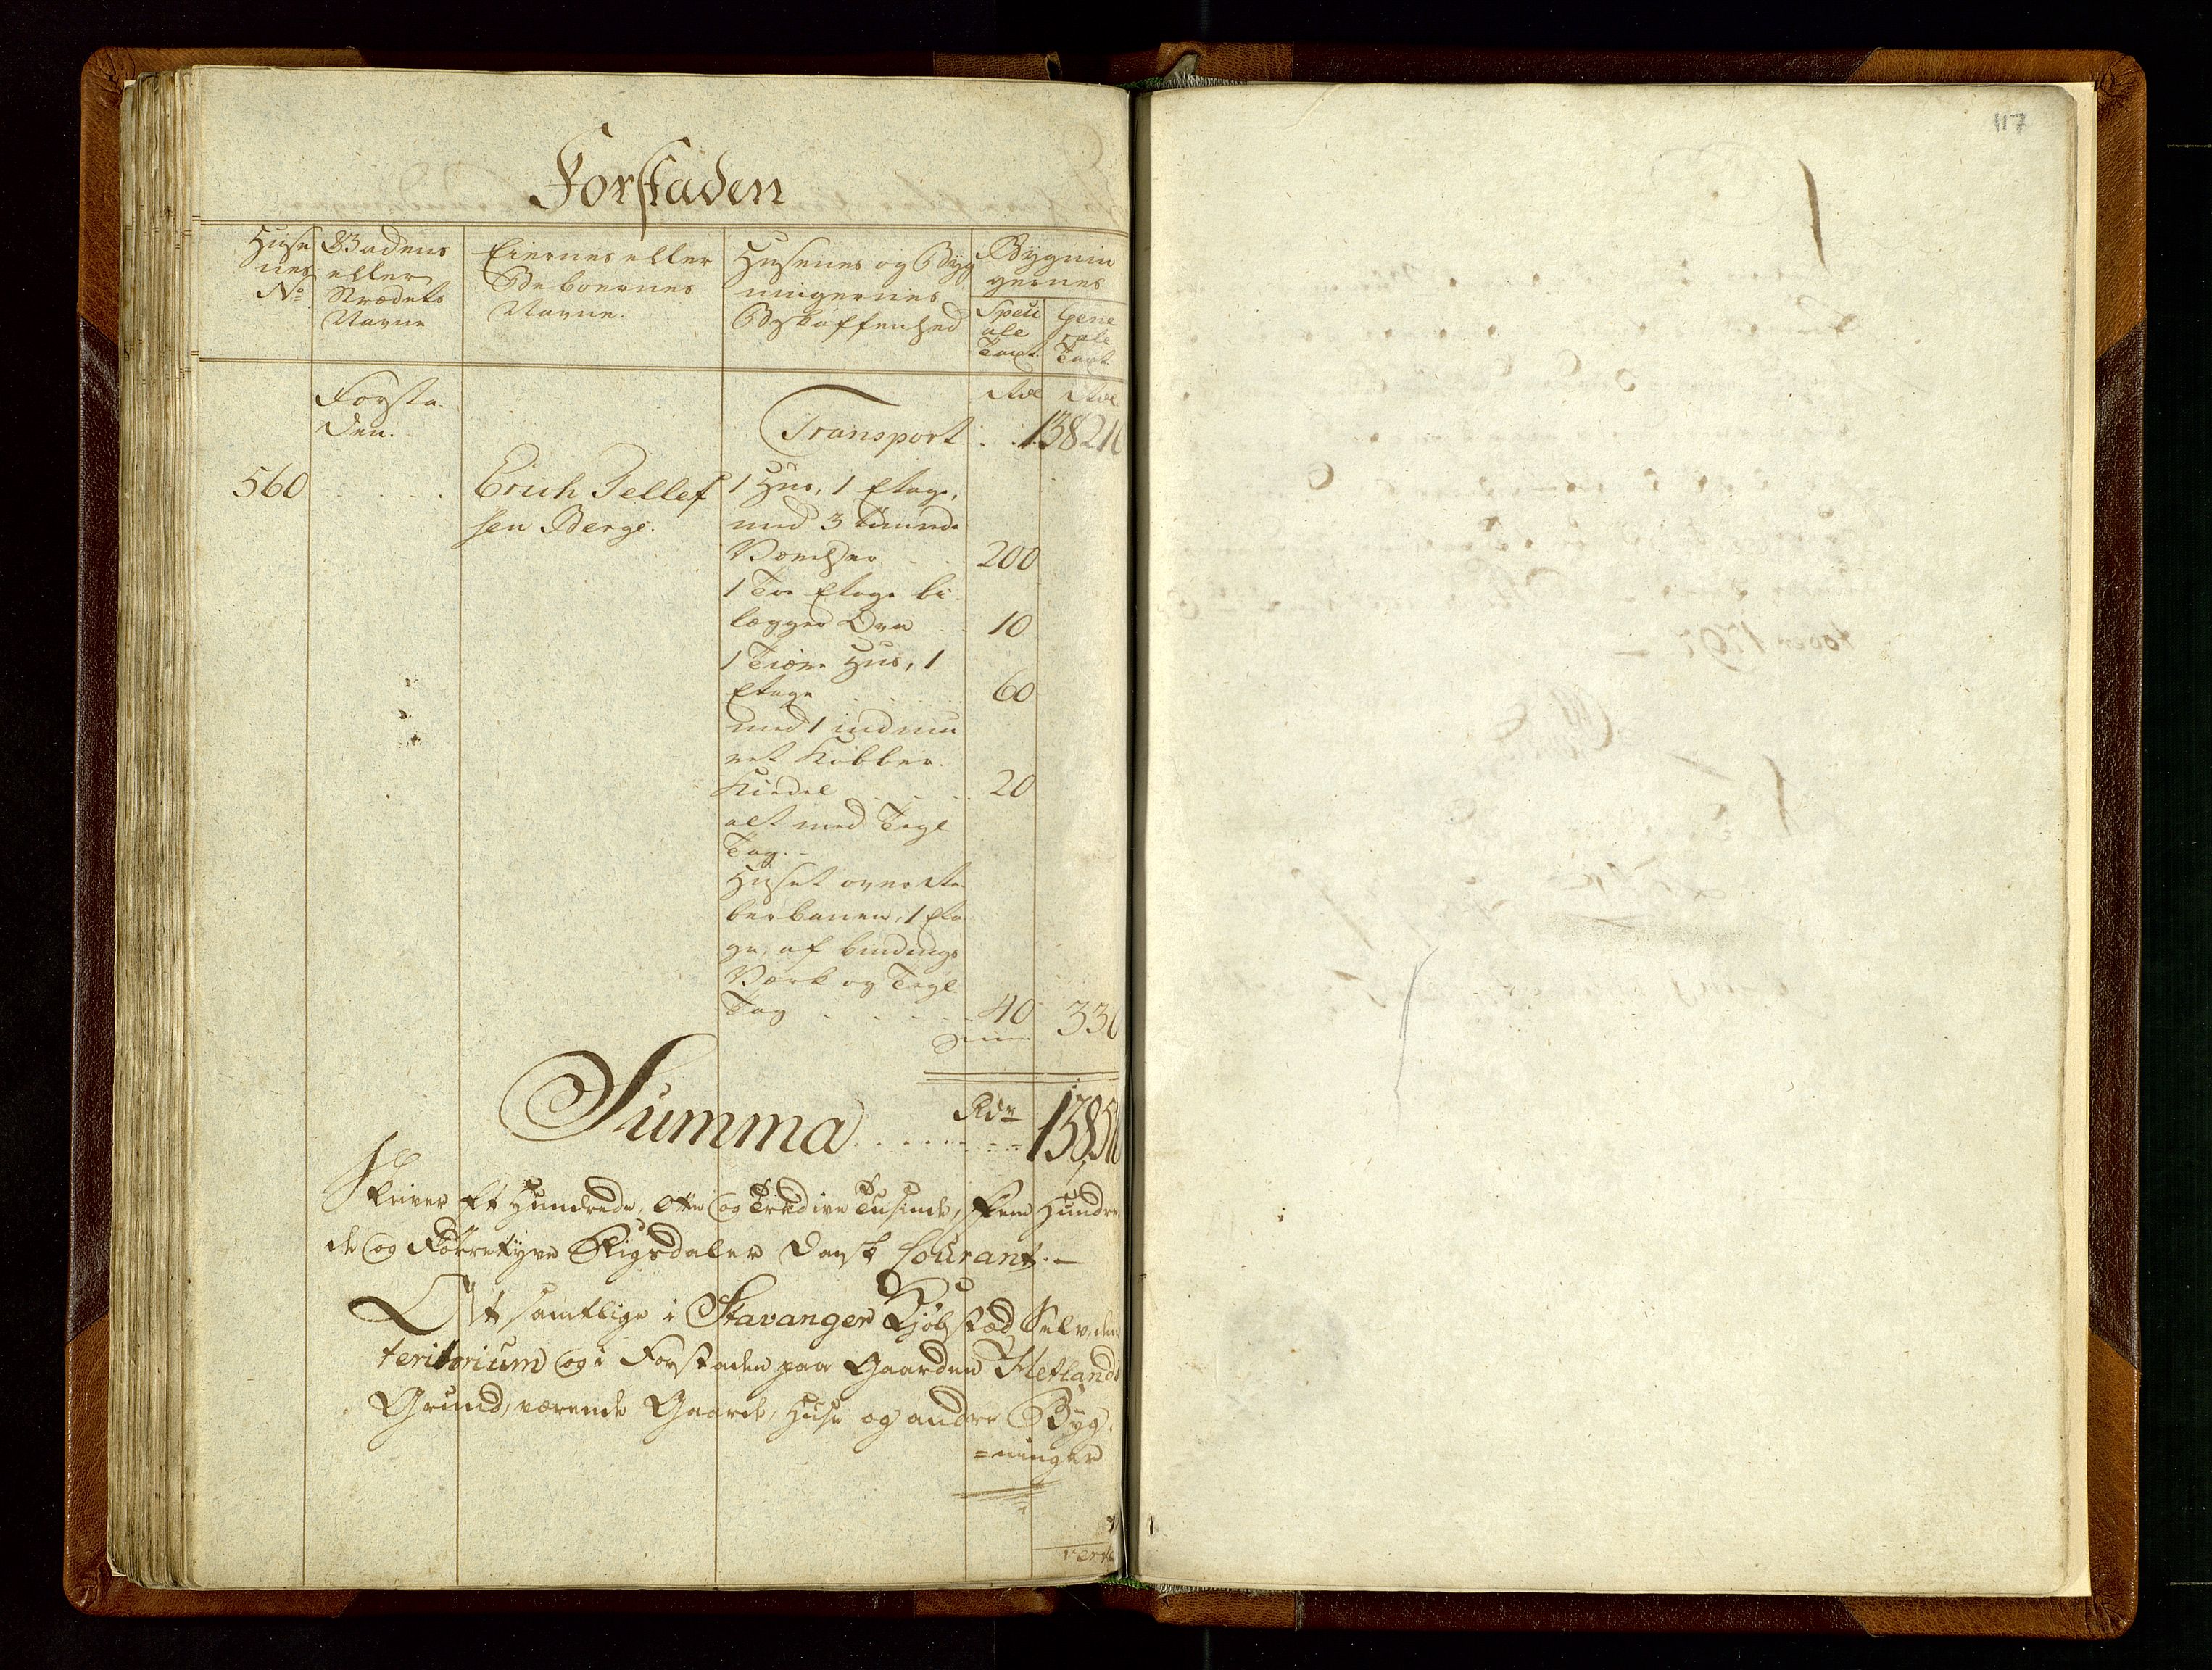 Forstaden
Huse
nes
No
Gadens
eller
Strædets
Navne
Eiernes eller
Beboernes
Navne.
Husenes og Byg
ningernes
Beskaffenhed
Bygnin
gernes
Speci
ale
Taxt.
Gene
rale
Taxt
Forsta
den.
Rdl Rdl
Transport . . 138210
560 . . . . Erich Tellef
sen Berge.
1 Hus, 1 Etage,
med 3
Værelser . . 200
1 Toe Etage bi
lægger Ovn . . 10
1 Hus, 1
Etage . . . 60
med 1 indmu
ret Kobber
Kiedel . . . 20
alt med Tegl
Tag. -
Huset over Re
berbanen, 1 Eta
ge, af bindings
Værk og Tegl
Tag . . . . . 40 330
Summa . . . . . . . . Rdr 138540
Skriver Et Hundrede, Otte og Tredive Tusinde, Fem Hundre
de og Förretyve Rigsdaler Dansk Courant. —
At samtlige i Stavanger Kjøbstæd Selv, dens
teritorium og i Forstaden paa Gaarden Hetlands
Grund, værende Gaarde, Huse og andre Byg
=ninger
verte
117